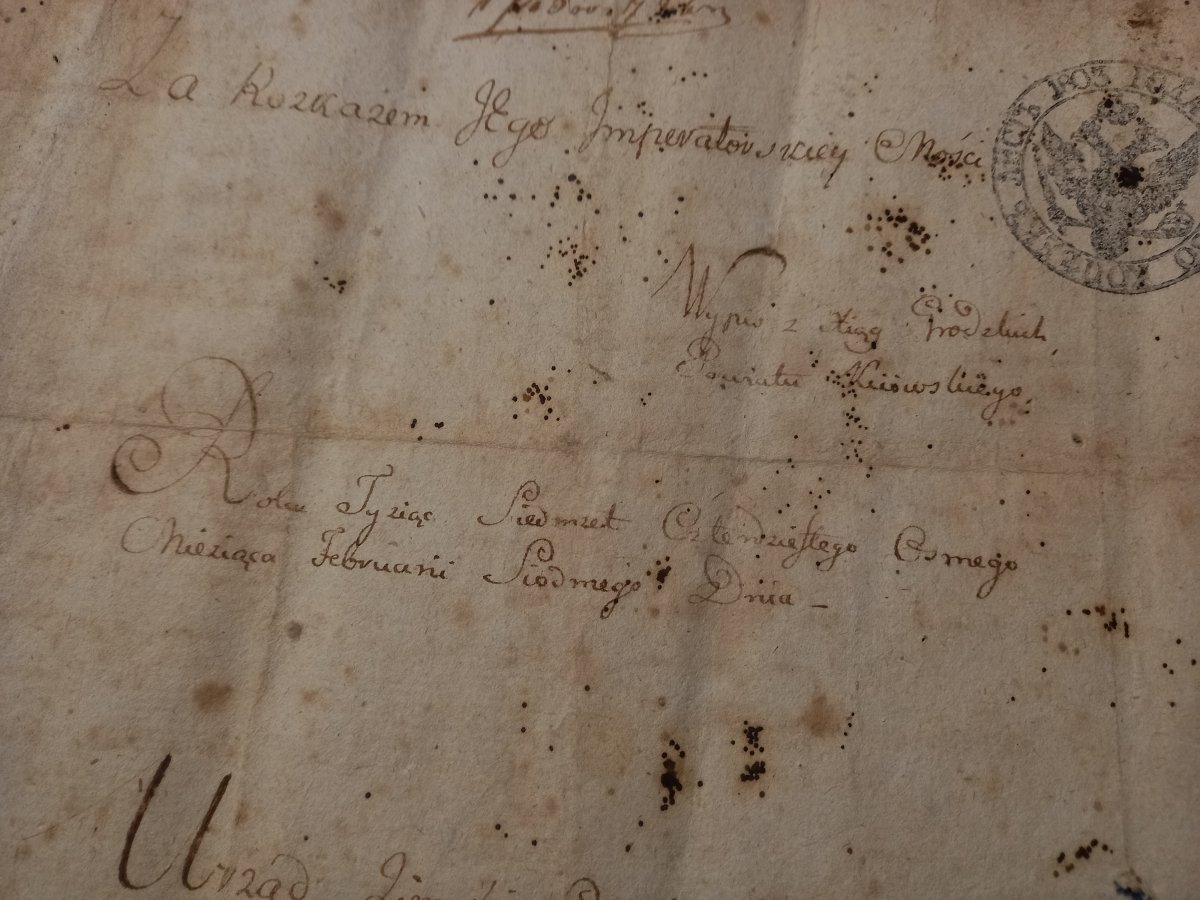 Za Rozkazem JEgo Jmperatorskiey Mości
Wypis z Xiąg Grodzkich
Powiatu Kiiowskiego
Roku Tysiąc Siedmset Czterdziestego Osmego
Miesiąca Februarii Siodmego Dnia _
Urząd
1803